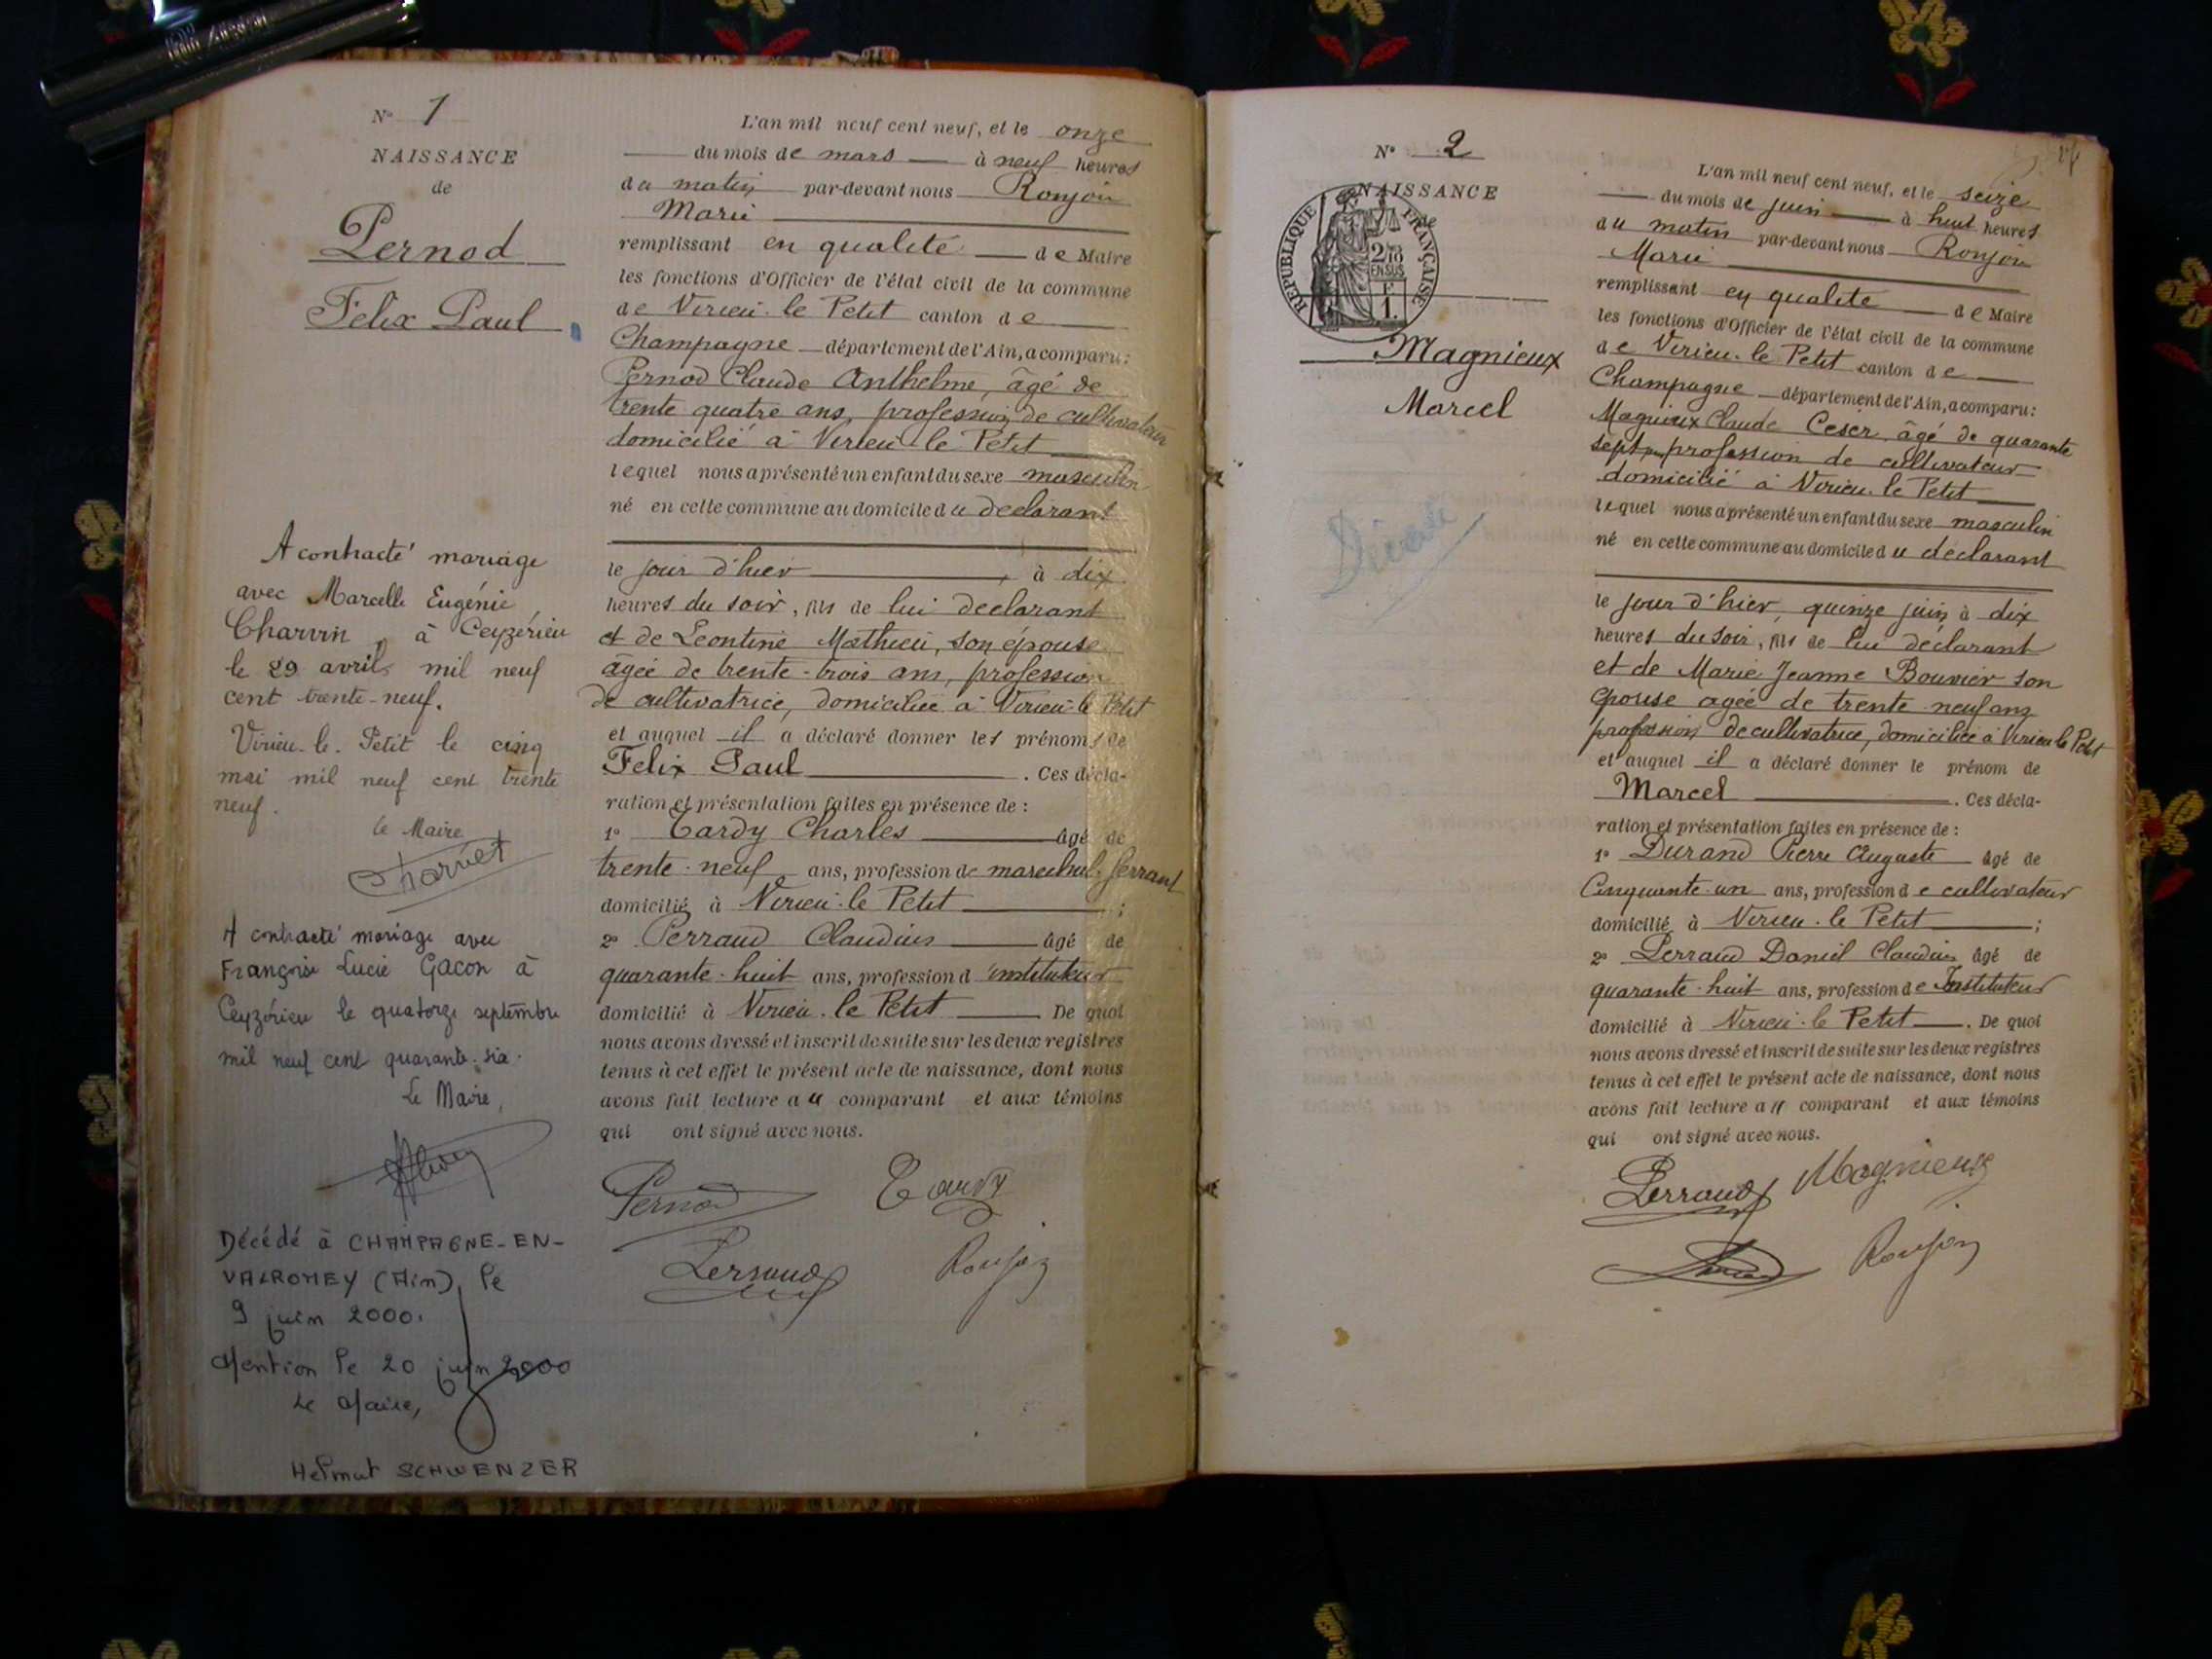 N° 1
NAISSANCE
de
Pernod
Félix Paul
A contracté mariage
avec Marcelle Eugénie
Charvin, à Ceyzérieu
le 29 avril mil neuf
cent trente-neuf.
Virieu-le-Petit le cinq
mai mil neuf cent trente
neuf.
le Maire
Charvet
A contracté mariage avec
Françoise Lucie Gacon à
Ceyzérieu le quatorze septembre
mil neuf cent quarante-six.
Le Maire,
Décédé à CHAMPAGNE-EN-
VALROMEY (Ain), le
9 juin 2000.
Mention le 20 juin 2000
Le Maire,
Helmut SCHWENZER
L'an mil neuf cent neuf, et le onze
du mois de mars à neuf heures
du matin par-devant nous Ronjon
Marie
remplissant en qualité de Maire
les fonctions d'Officier de l'état civil de la commune
de Virieu-le-Petit canton de
Champagne département de l'Ain, a comparu:
Pernod Claude Anthelme, âgé de
trente quatre ans, profession de cultivateur
domicilié à Virieu-le-Petit
lequel nous a présenté un enfant du sexe masculin
né en cette commune au domicile du déclarant
le jour d'hier, à dix
heures du soir, fils de lui déclarant
et de Léontine Mathieu, son épouse
âgée de trente-trois ans, profession
de cultivatrice, domiciliée à Virieu-le-Petit
et auquel il a déclaré donner les prénoms de
Felix Paul. Ces décla-
ration et présentation faites en présence de :
1° Tardy Charles âgé de
trente-neuf ans, profession de marechal-ferrant
domicilié à Virieu-le-Petit ;
2° Perraud Claudius âgé de
quarante-huit ans, profession d'instituteur
domicilié à Virieu-le-Petit De quoi
nous avons dressé et inscrit de suite sur les deux registres
tenus à cet effet le présent acte de naissance, dont nous
avons fait lecture au comparant et aux témoins
qui ont signé avec nous.
Pernod Tardy
Perraud Ronjon
N° 2
NAISSANCE
de
REPUBLIQUE FRANÇAISE
2/10
EN SUS
F
1.
Magnieux
Marcel
Décédé
L'an mil neuf cent neuf, et le seize
du mois de juin à huit heures
du matin par-devant nous Ronjon
Marie
remplissant en qualité de Maire
les fonctions d'Officier de l'état civil de la commune
de Virieu-le-Petit canton de
Champagne département de l'Ain, a comparu:
Magnieux Claude Céser, âgé de quarante
sept ans profession de cultivateur
domicilié à Virieu-le-Petit
lequel nous a présenté un enfant du sexe masculin
né en cette commune au domicile du déclarant
le jour d'hier, quinze juin à dix
heures du soir, fils de lui déclarant
et de Marie Jeanne Bouvier son
épouse agée de trente-neuf ans
profession de cultivatrice, domiciliée à Virieu le Petit
et auquel il a déclaré donner le prénom de
Marcel. Ces décla-
ration et présentation faites en présence de :
1° Durand Pierre Auguste âgé de
Cinquante-un ans, profession de cultivateur
domicilié à Virieu-le-Petit ;
2° Perraud Daniel Claudius âgé de
quarante-huit ans, profession de Instituteur
domicilié à Virieu-le-Petit. De quoi
nous avons dressé et inscrit de suite sur les deux registres
tenus à cet effet le présent acte de naissance, dont nous
avons fait lecture au comparant et aux témoins
qui ont signé avec nous.
Perraud Magnieux
Durand Ronjon